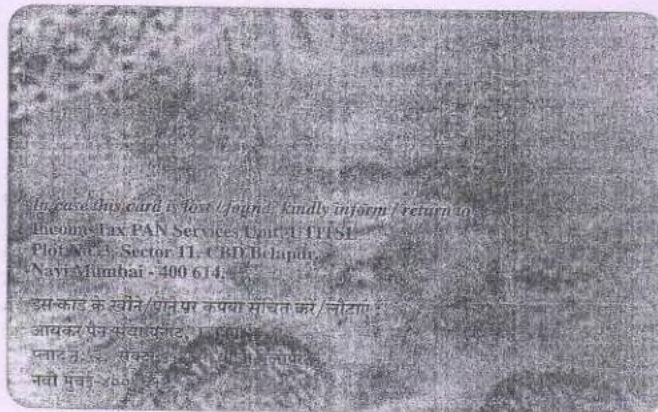 In case this card is lost / found, kindly inform / return to :
Income Tax PAN Services Unit, UTITSL
Plot No. 3, Sector 11, CBD Belapur,
Navi Mumbai - 400 614.
इस कार्ड के खोने/पाने पर कृपया सूचित करें/लौटाएं :
आयकर पैन सेवा यूनिट,
प्लाट नं. सेक्टर
नवी मुंबई-४००